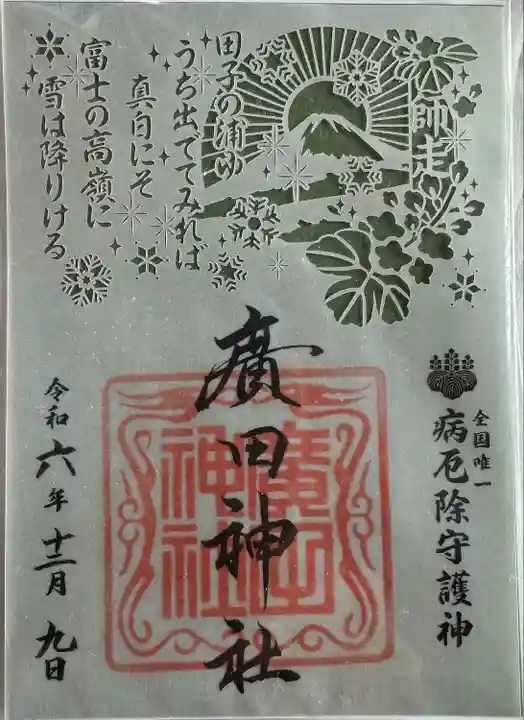 師走
田子の浦ゆ
うち出でてみれば
真白にそ
富士の高嶺に
雪は降りける
全国唯一
病厄除守護神
廣田神社
廣田神社
令和六年十二月九日